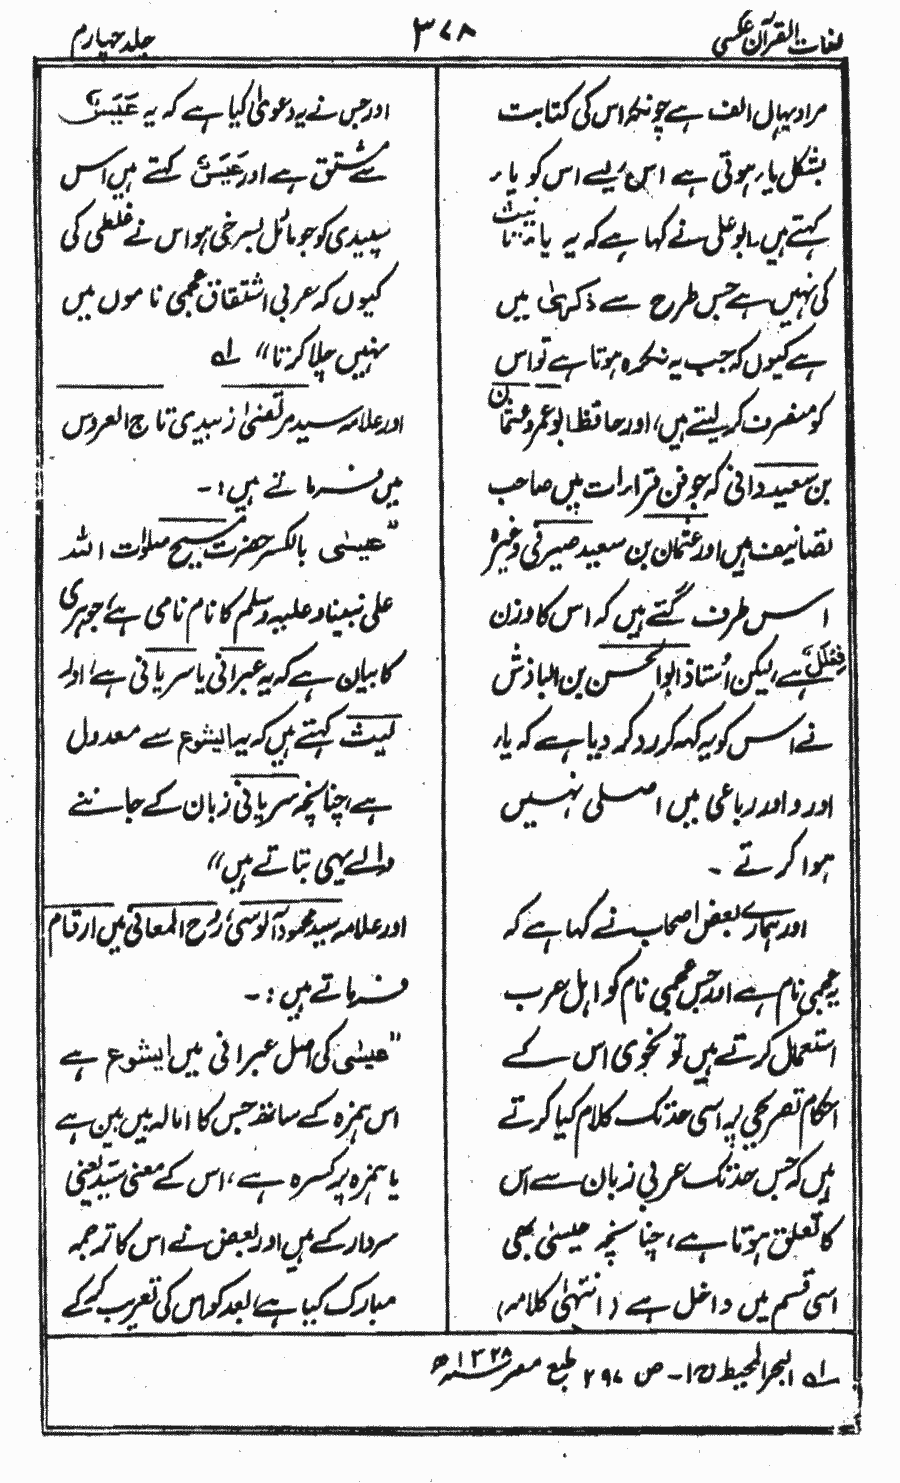 لغات القرآن عکسی
۳۷۸
جلد چہارم
مراد یہاں الف ہے چونکہ اس کی کتابت
بشکل یاء ہوتی ہے اس لیے اس کو یاء
کہتے ہیں۔ ابوعلی نے کہا ہے کہ یہ یاء تانیث
کی نہیں ہے جس طرح سے ذکریٰ میں
ہے کیوں کہ جب یہ نکرہ ہوتا ہے تو اس
کو منصرف کر لیتے ہیں، اور حافظ ابوعمرو عثمان
بن سعید دانی کہ جو فن قراءات میں صاحب
تصانیف ہیں اور عثمان بن سعید صیرفی وغیرہ
اس طرف گئے ہیں کہ اس کا وزن
فِعْلَلٌ ہے، لیکن اُستاذ ابوالحسن بن الباذش
نے اس کو یہ کہہ کر رد کر دیا ہے کہ یاء
اور واو رباعی میں اصلی نہیں
ہوا کرتے ۔
اور ہمارے بعض اصحاب نے کہا ہے کہ
یہ عجمی نام ہے اور جس عجمی نام کو اہل عرب
استعمال کرتے ہیں تو نحوی اس کے
احکام تصریحی پر اسی حد تک کلام کیا کرتے
ہیں کہ جس حد تک عربی زبان سے اس
کا تعلق ہوتا ہے، چنانچہ عیسیٰ بھی
اسی قسم میں داخل ہے (انتہیٰ کلامہ)
اور جس نے یہ دعویٰ کیا ہے کہ یہ عَیَسٌ
سے مشتق ہے اور عَیَسٌ کہتے ہیں اس
سپیدی کو جو مائل بسرخی ہو اس نے غلطی کی
کیوں کہ عربی اشتقاق عجمی ناموں میں
نہیں چلا کرتا" لہ
اور علامہ سید مرتضیٰ زبیدی تاج العروس
میں فرماتے ہیں:۔
"عیسٰی بالکسر حضرت مسیح صلوات اللہ
علی نبینا وعلیہ وسلم کا نام نامی ہے، جوہری
کا بیان ہے کہ یہ عبرانی یا سریانی ہے، اور
لیث کہتے ہیں کہ یہ ایشوع سے معدول
ہے، چنانچہ سریانی زبان کے جاننے
والے یہی بتاتے ہیں"
اور علامہ سید محمود آلوسی، روح المعانی میں ارقام
فرماتے ہیں:۔
"عیسٰی کی اصل عبرانی میں ایشوع ہے
اس ہمزہ کے ساتھ جس کا امالہ بین بین ہے
یا ہمزہ پر کسرہ ہے، اس کے معنی سیّد یعنی
سردار کے ہیں اور بعض نے اس کا ترجمہ
مبارک کیا ہے، بعد کو اس کی تعریب کر کے
لہ البحر المحیط ج ۱۔ ص ۲۹۷ طبع مصر ۱۳۲۸ھ